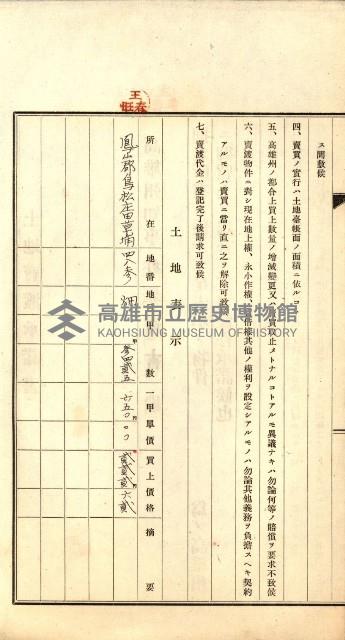 ス間敷候
四、賣買ノ實行ハ土地臺帳面ノ面積ニ依ルコト
五、高雄州ノ都合上買上數量ノ增減變更又ハ賣買取止メトナルコトアルモ異議ナキハ勿論何等ノ賠償ヲ要求不致候
六、賣渡物件ニ對シ現在地上權、永小作權、賃借權其他ノ權利ヲ設定シアルモノハ勿論其他義務ヲ負擔スヘキ契約
アルモノハ賣買ニ當リ直ニ之ヲ解除可致候
七、賣渡代金ハ登記完了後請求可致候
土地表示
所在 地番 地目 甲數 一甲單價 買上價格 摘要
鳳山郡鳥松庄田草埔 四八參 畑
高雄市立歷史博物館
KAOHSIUNG MUSEUM OF HISTORY